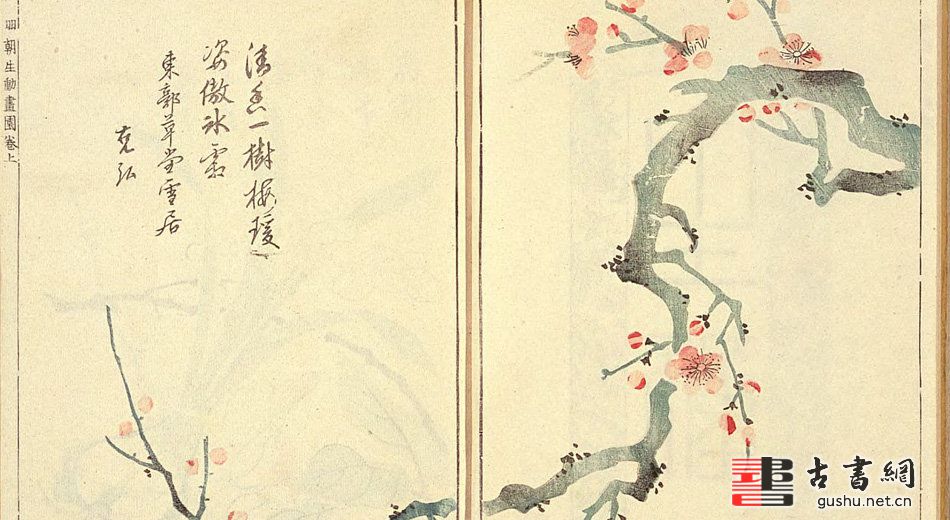 清香一樹梅
姿傲冰霜
東郭草堂雪居
克弘
明朝生動畫園卷上
古書網
gushu.net.cn